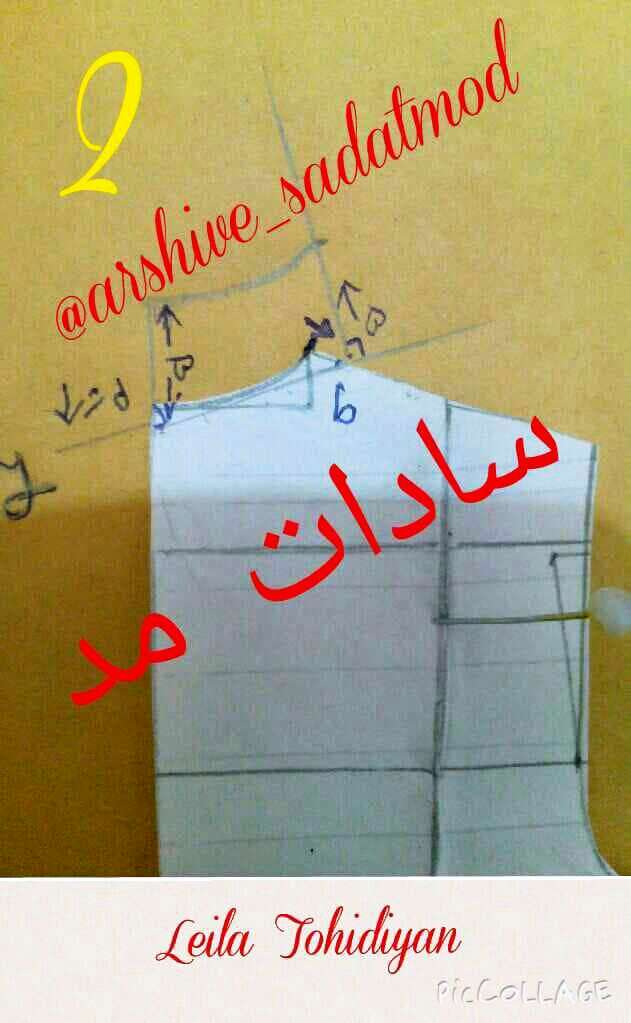 2
@arshive_sadatmod
سادات مد
Leila Tohidiyan
PicCOLLAGE